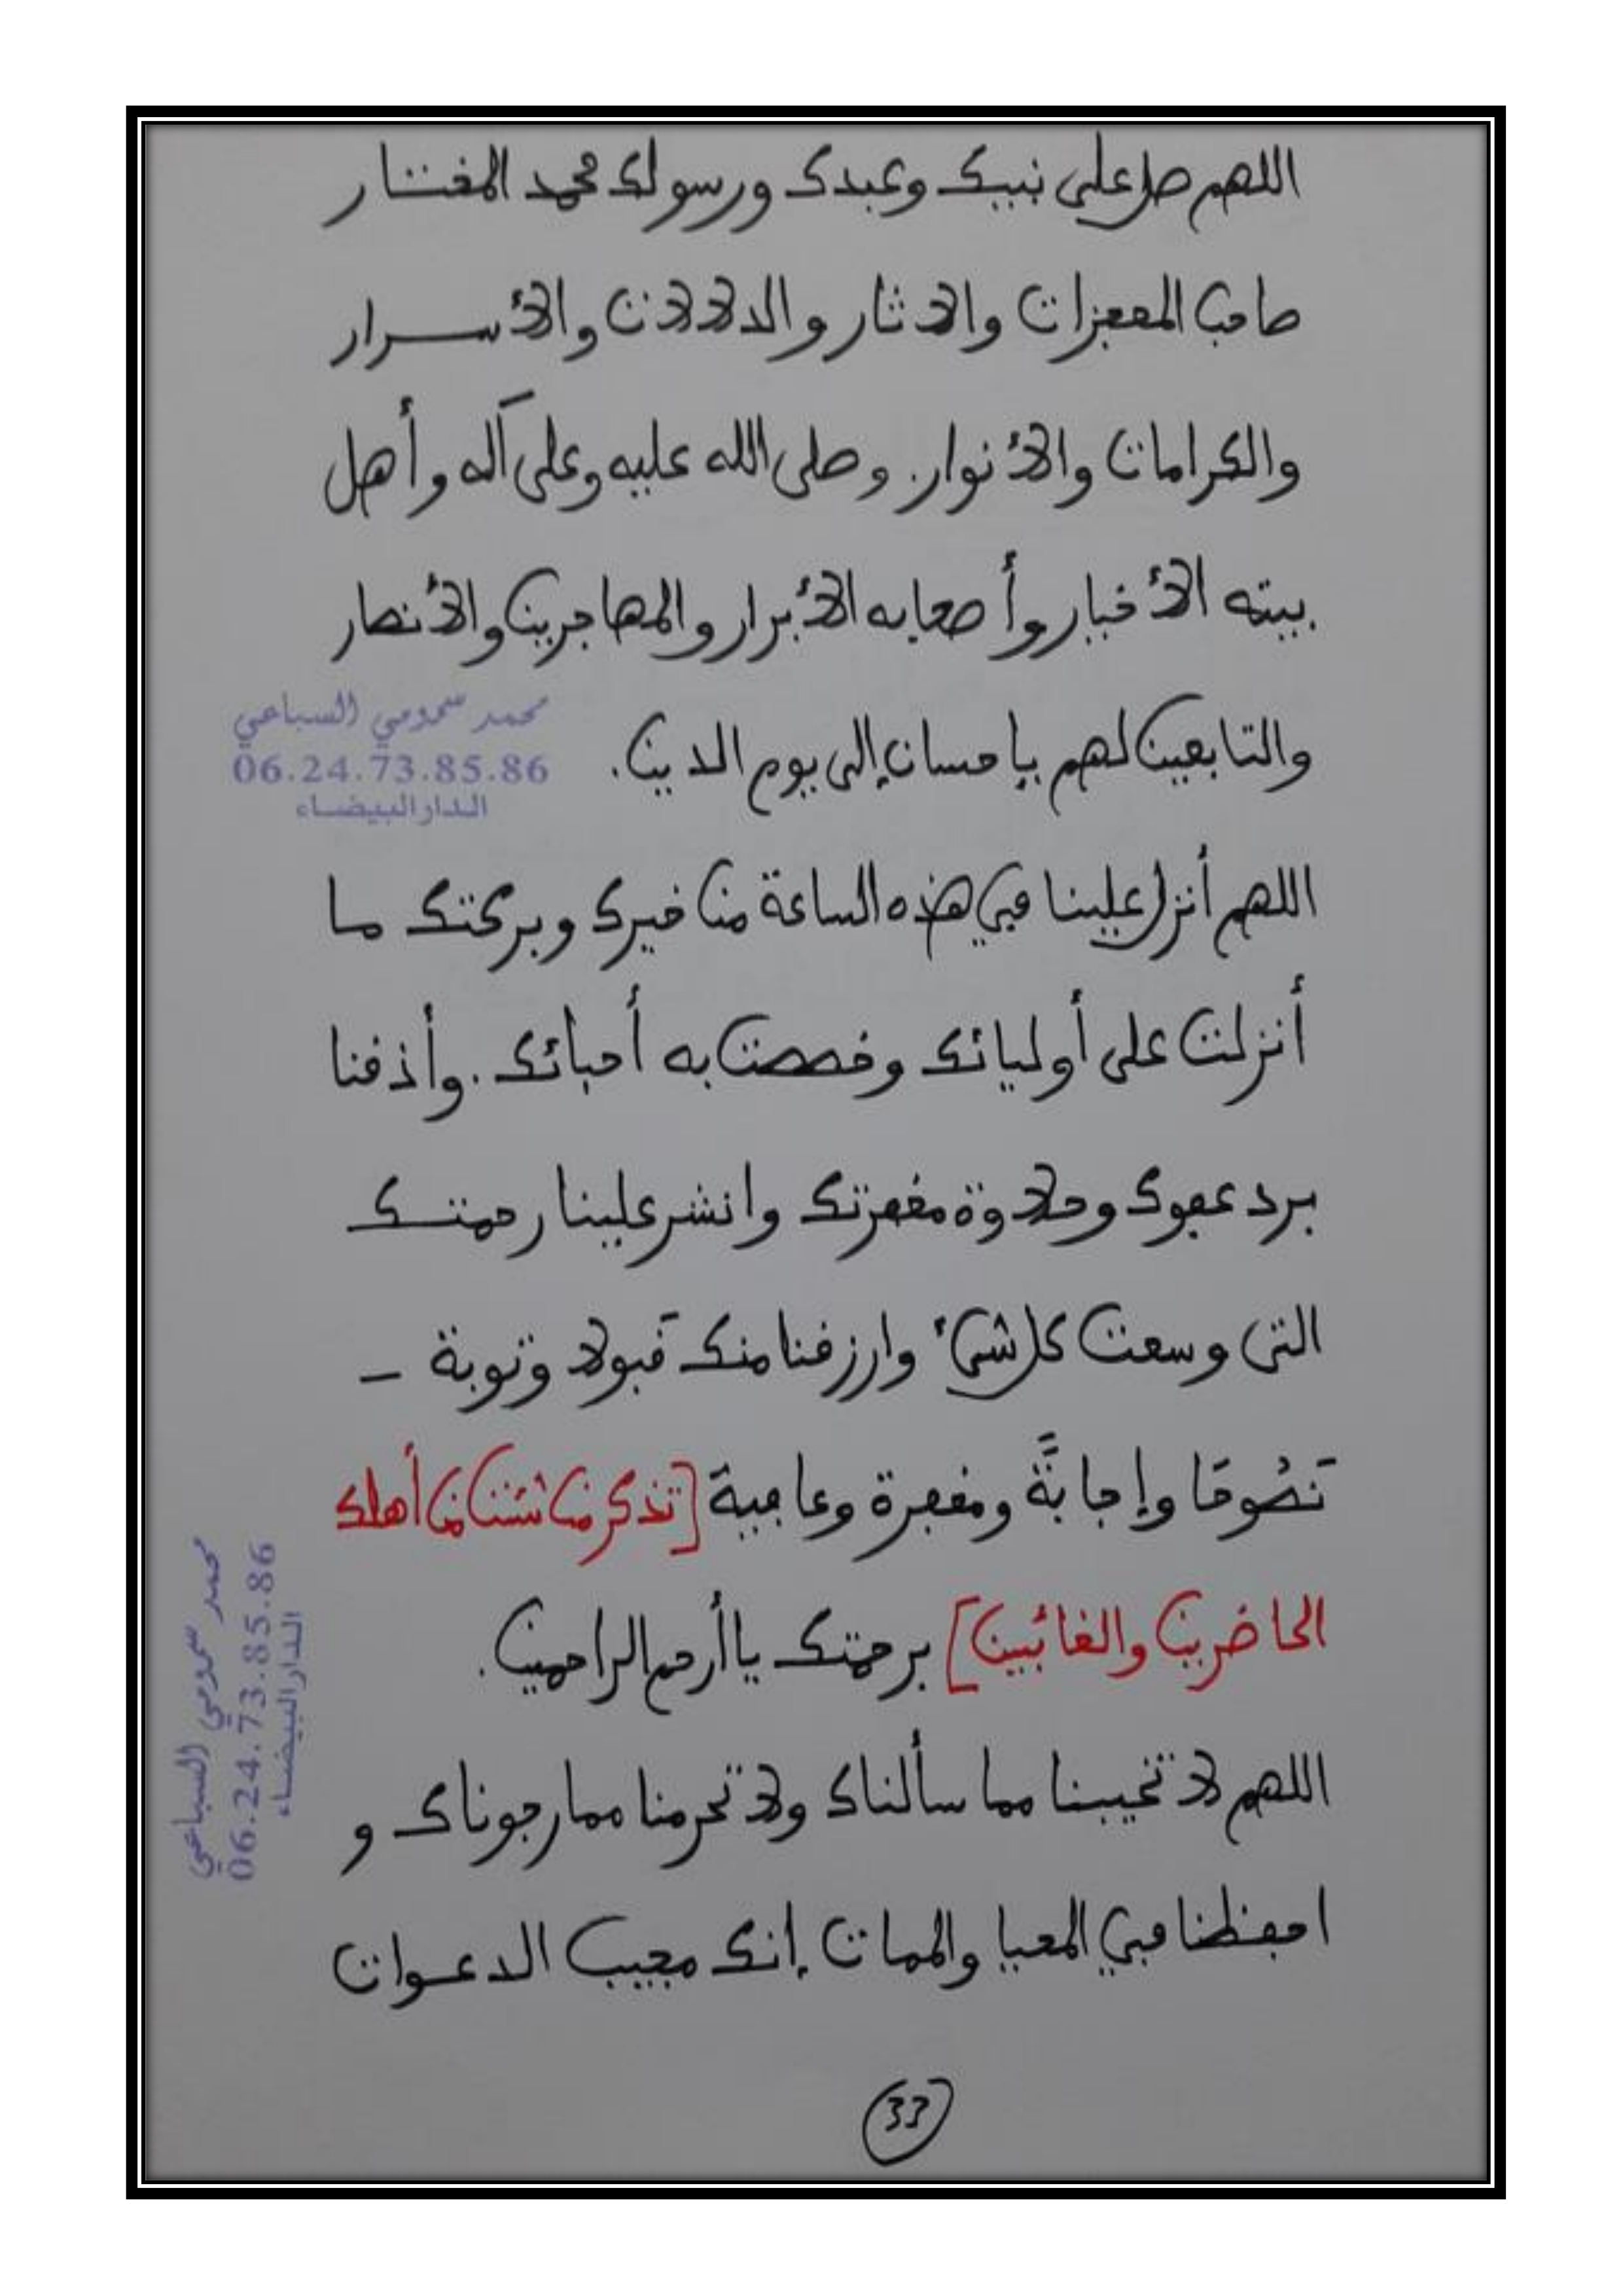 اللهم صل على نبيك وعبدك ورسولك محمد المختار
صاحب المعجزات والاثار والدلالات والأسرار
والكرامات والأنوار. وصلى الله عليه وعلى آله وأهل
بيته الأخيار وأصحابه الأبرار والمهاجرين والأنصار
والتابعين لهم بإحسان إلى يوم الدين.
محمد سمومي السباعي
06.24.73.85.86
الدار البيضاء
اللهم أنزل علينا في هذه الساعة من خيرك وبركتك ما
أنزلت على أوليائك وخصصت به أحبائك. وأذقنا
برد عفوك وحلاوة مغفرتك وانشر علينا رحمتك
التي وسعت كل شيء وارزقنا منك قبولا وتوبة -
نصُوحًا وإجابةً ومغفرة وعافية [تذكر من شئت من أهلك
الحاضرين والغائبين] برحمتك يا أرحم الراحمين.
اللهم لا تخيبنا مما سألناك ولا تحرمنا مما رجوناك و
احفظنا في المحيا والممات إنك مجيب الدعوات
محمد سمومي السباعي
06.24.73.85.86
الدار البيضاء
33